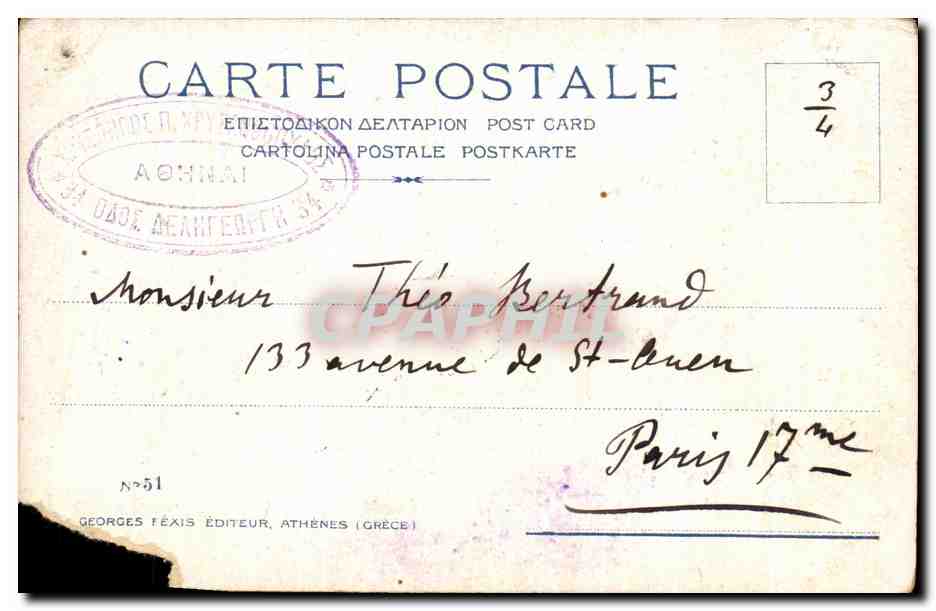 CARTE POSTALE
3/4
ΕΠΙΣΤΟΛΙΚΟΝ ΔΕΛΤΑΡΙΟΝ POST CARD
CARTOLINA POSTALE POSTKARTE
ΑΘΗΝΑΙ
34 ΟΔΟΣ ΔΕΛΗΓΕΩΡΓΗ 34
Monsieur Théo Bertrand
CPAPHIL
133 avenue de St-Ouen
Paris 17me
No 51
GEORGES FÉXIS ÉDITEUR, ATHÈNES (GRÈCE)